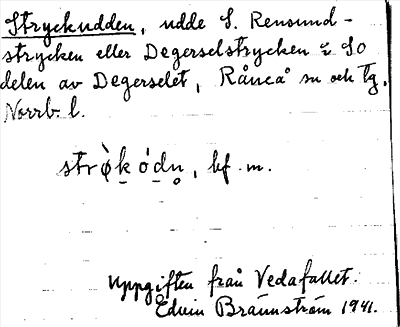 Stryckudden, udde S. Rensund-
strycken eller Degerselstrycken i SO
delen av Degerselet, Råneå sn och tg.
Norrb. l.
strø̀k ó dn̥, bf. m.
Uppgiften från Vedafallet.
Edvin Brännström 1941.